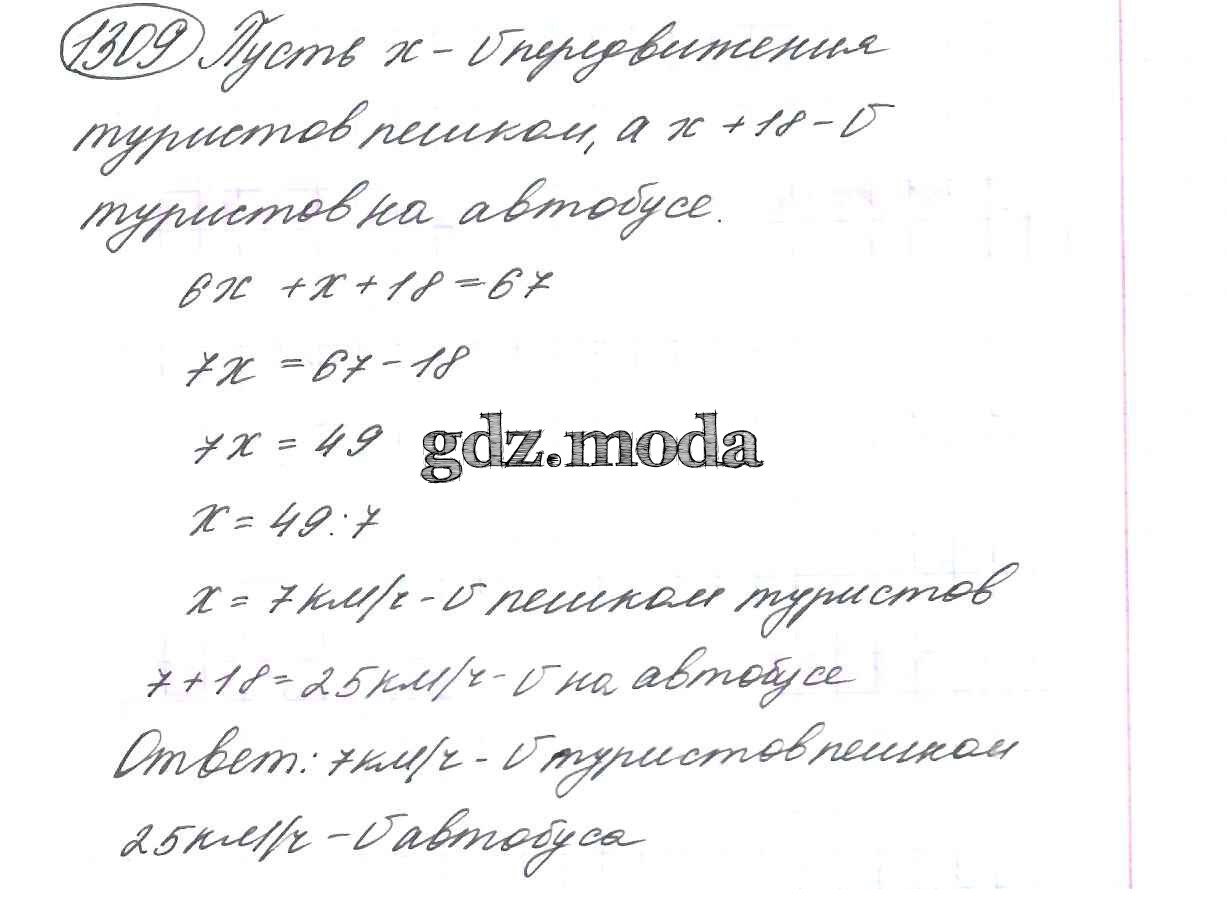 1309 Пусть x - υ передвижения
туристов пешком, а x + 18 - υ
туристов на автобусе.
6x + x + 18 = 67
7x = 67 - 18
7x = 49
gdz.moda
x = 49 : 7
x = 7 км/ч - υ пешком туристов
7 + 18 = 25 км/ч - υ на автобусе
Ответ: 7 км/ч - υ туристов пешком
25 км/ч - υ автобуса